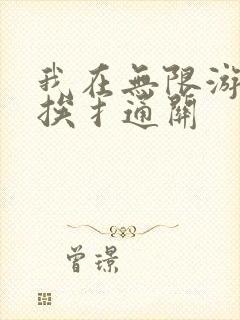 我在無限游
挨才通關
曾璟